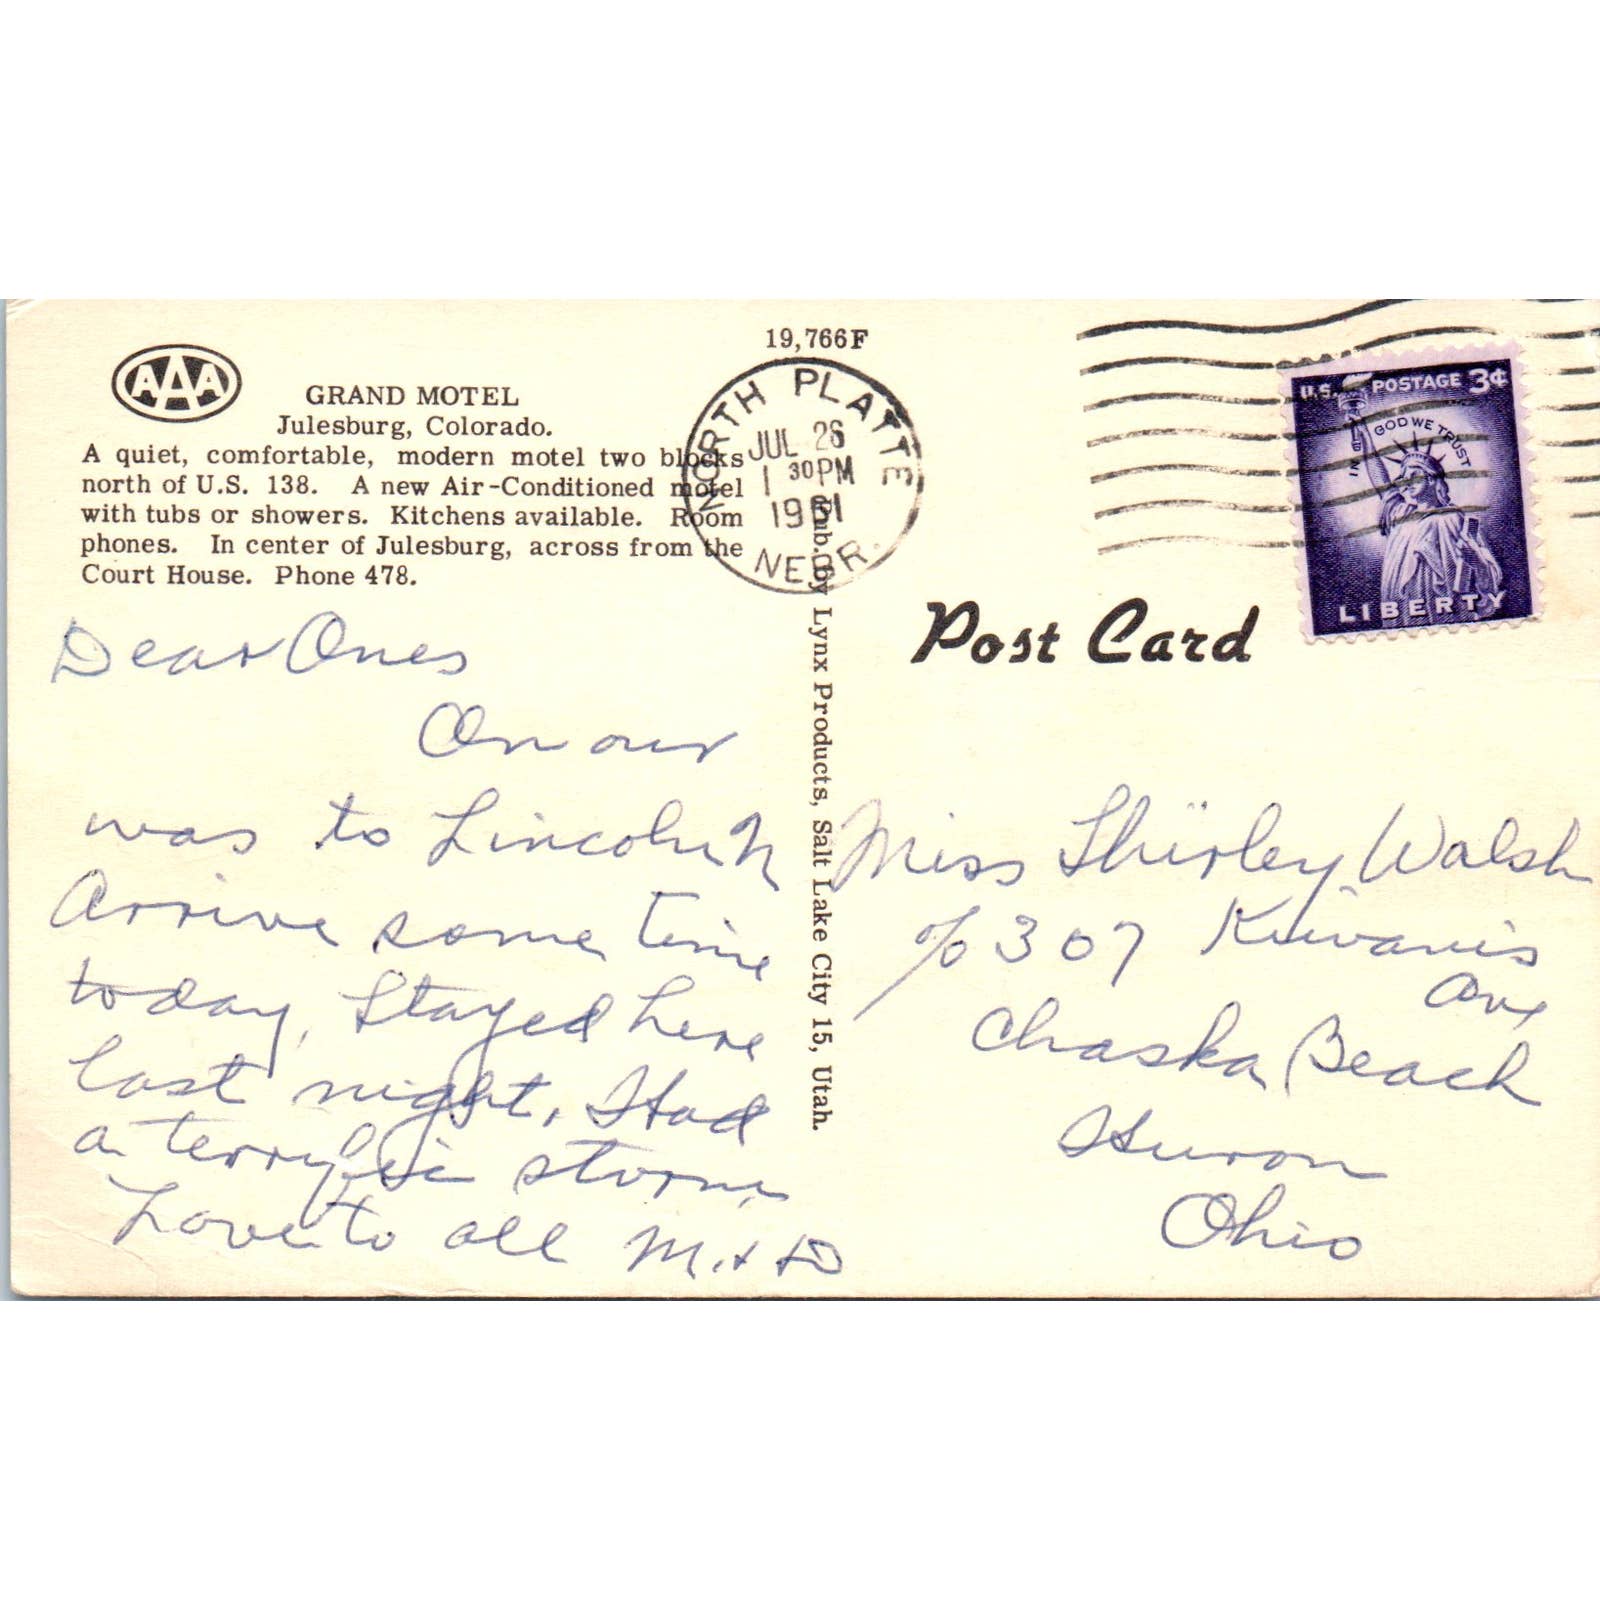 19,766F
AAA
GRAND MOTEL
Julesburg, Colorado.
A quiet, comfortable, modern motel two blocks
north of U.S. 138. A new Air-Conditioned motel
with tubs or showers. Kitchens available. Room
phones. In center of Julesburg, across from the
Court House. Phone 478.
NORTH PLATTE
JUL 26
1 30 PM
1961
NEBR.
U.S. POSTAGE 3¢
IN GOD WE TRUST
LIBERTY
Post Card
Pub. by Lynx Products, Salt Lake City 15, Utah.
Dear Ones
On our
was to Lincoln
Arrive some time
today, Stayed here
last night, Had
a terryfic storm
Love to all M. + D
Miss Shirley Walsh
c/o 307 Kiwanis
Ave
Chaska Beach
Huron
Ohio